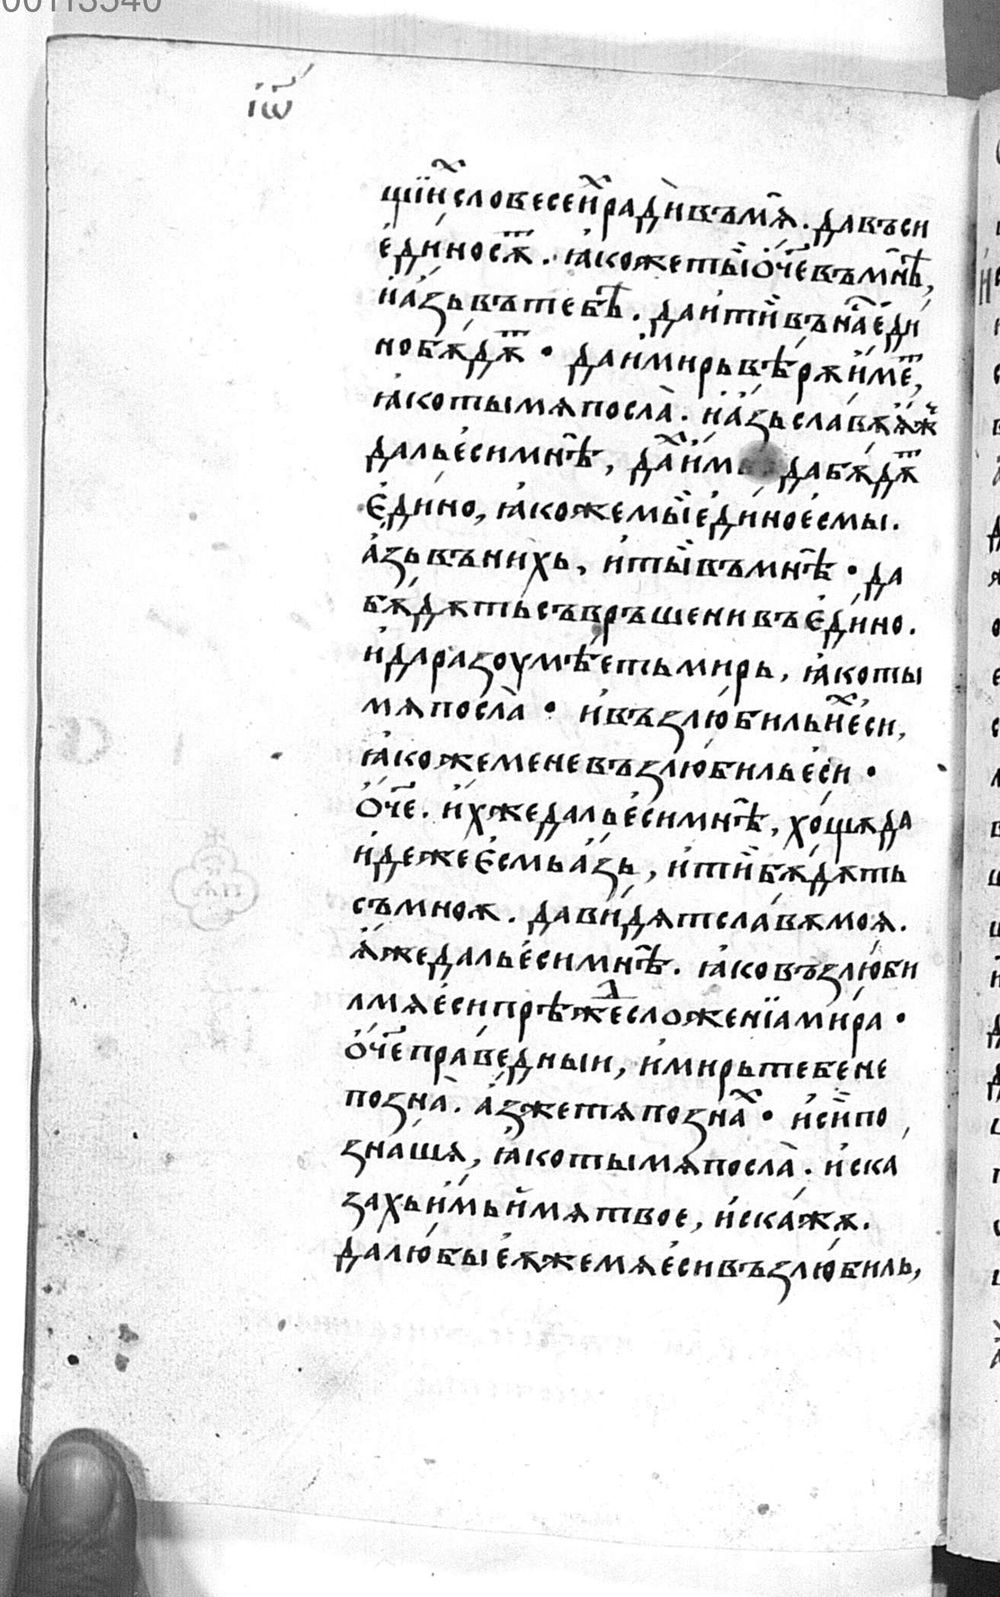 00113540
іѡ҃
щїи҆ⷯ словесеи҆ⷯ ради̏ въ мѧ̑ . да въси
е҆ди́но сѫⷮ . ꙗ҆коже ты̏ ѻ҆́ч҃е въ мнѣ̑ ,
и҆ а҆́зь въ тебѣ̑ . да и҆ ти̏ въ на̑ е҆ди́
но бѫ́дѫⷮ · да и҆ мирь вѣ́рѫ и҆́меⷮ ,
ꙗ҆ко ты мѧ посла̀ . и҆ а҆́зь сла́вѫ ѧ҆́ж̾
даль е҆си мнѣ̑ , да́ⷯ и҆́мь да бѫ́дѫⷮ
є҆ди́но , ꙗ҆коже мы̏ е҆ди́но е҆смы .
а҆́зь въ нихь , и҆ ты̏ въ мнѣ̑ · да
бѫ́дѫть съвръшени въ є҆ди́но .
и҆ да разоумѣ́еть мирь , ꙗ҆ко ты
мѧ посла̀ · и҆ възлю́биль и҆ⷯ е҆си ,
ꙗ҆коже мене възлю́биль е҆си ·
ѻ҆́ч҃е . и҆́хже даль е҆си мнѣ̑ , хо́щѫ да
и҆де́же є҆смь а҆́зь , и҆ ти̏ бѫ́дѫть
съ мноѫ . да ви́дѧт сла́вѫ моѧ .
ѧ҆́же даль е҆си мнѣ̑ . ꙗ҆ко възлю́би
л мѧ е҆си прѣ́жеⷣ сложенїа ми́ра ·
ѻ҆́ч҃е пра́ведныи , и҆ мирь тебе не
позна̀ . а҆́з же тѧ познаⷯ · и҆ си̏ по
зна́шѧ , ꙗ҆ко ты мѧ посла̀ . и҆ ска
захь и҆́мь и҆́мѧ твое , и҆ скажѫ .
да любы е҆ѫже мѧ е҆си възлю́биль ,